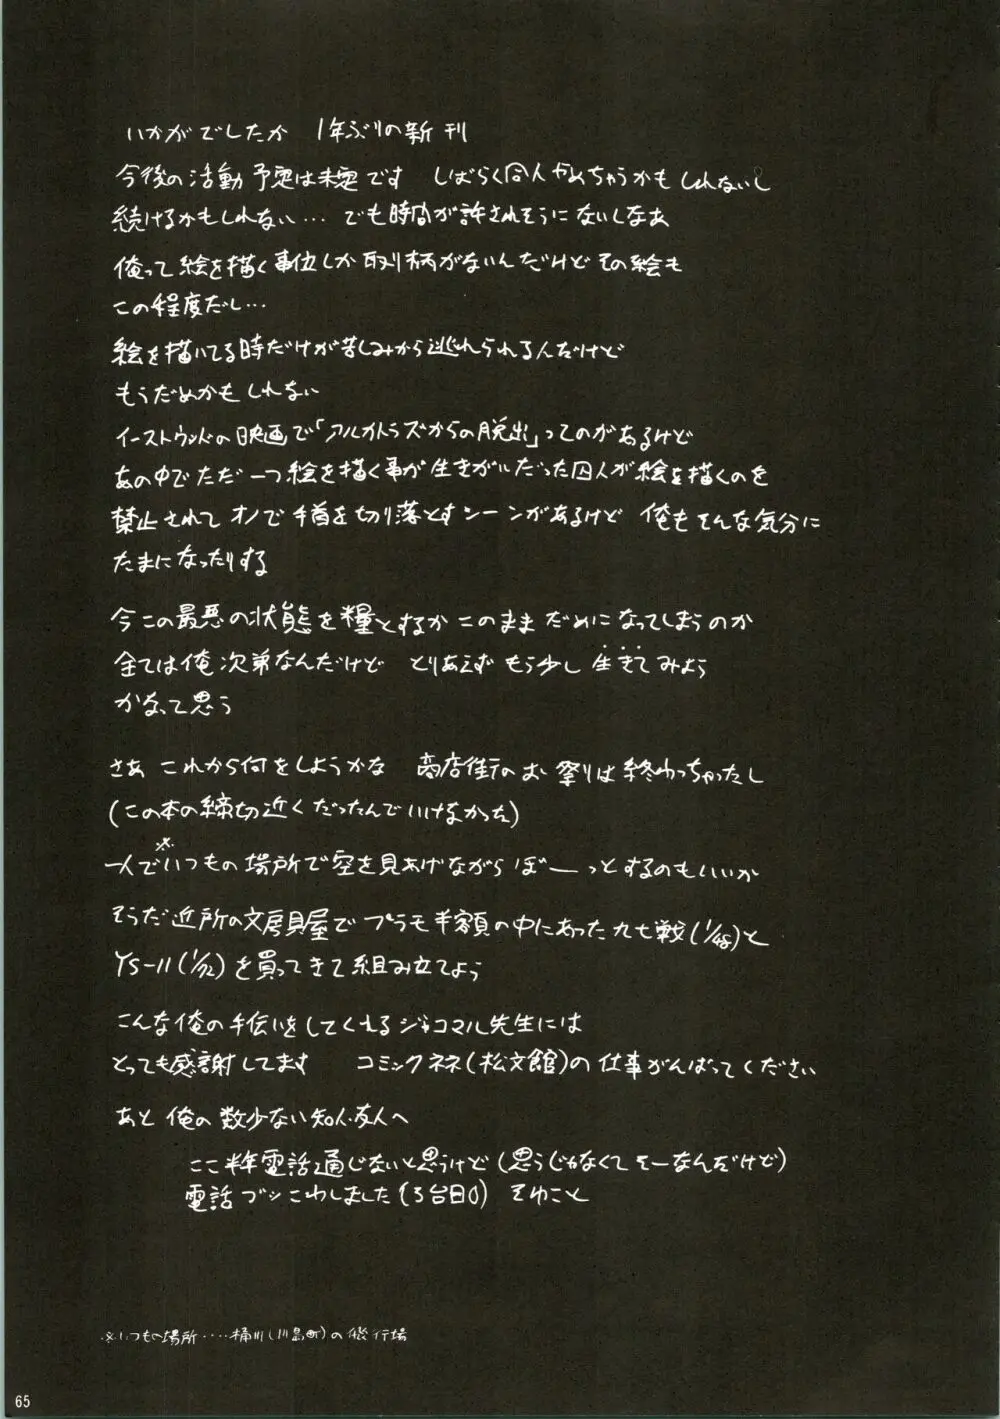 いかがでしたか 1年ぶりの新刊
今後の活動予定は未定です しばらく同人やめちゃうかもしれないし
続けるかもしれない… でも時間が許されそうにないしなぁ
俺って絵を描く事位しか取り柄がないんだけどその絵も
この程度だし…
絵を描いてる時だけが苦しみから逃れられる人だけど
もうだめかもしれない
イーストウッドの映画で「アルカトラズからの脱出」ってのがあるけど
あの中でただ一つ絵を描く事が生きがいだった囚人が絵を描くのを
禁止されてオノで手首を切り落とすシーンがあるけど 俺もそんな気分に
たまになったりする
今この最悪の状態を糧とするかこのままだめになってしまうのか
全ては俺次第なんだけど とりあえずもう少し生きてみよう
かなって思う
さあ これから何をしようかな 商店街のお祭りは終わっちゃったし
(この本の締切近くだったんでいけなかった)
一人で※いつもの場所で空を見あげながらぼーっとするのもいいか
そうだ近所の文房具屋でプラモ半額の中にあった九七戦(1/48)と
YS-11(1/32)を買ってきて組み立てよう
こんな俺の手伝いをしてくれるジャコマル先生には
とっても感謝してます コミックネネ(松文館)の仕事がんばってください
あと俺の数少ない知人・友人へ
ここ半年電話通じないと思うけど(思うじゃなくてそーなんだけど)
電話ブッこわしました(3台目0) そゆこと
※いつもの場所‥‥桶川(川島町)の飛行場
65